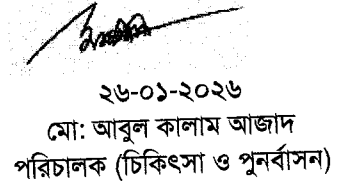 ২৬-০১-২০২৬
মো: আবুল কালাম আজাদ
পরিচালক (চিকিৎসা ও পুনর্বাসন)